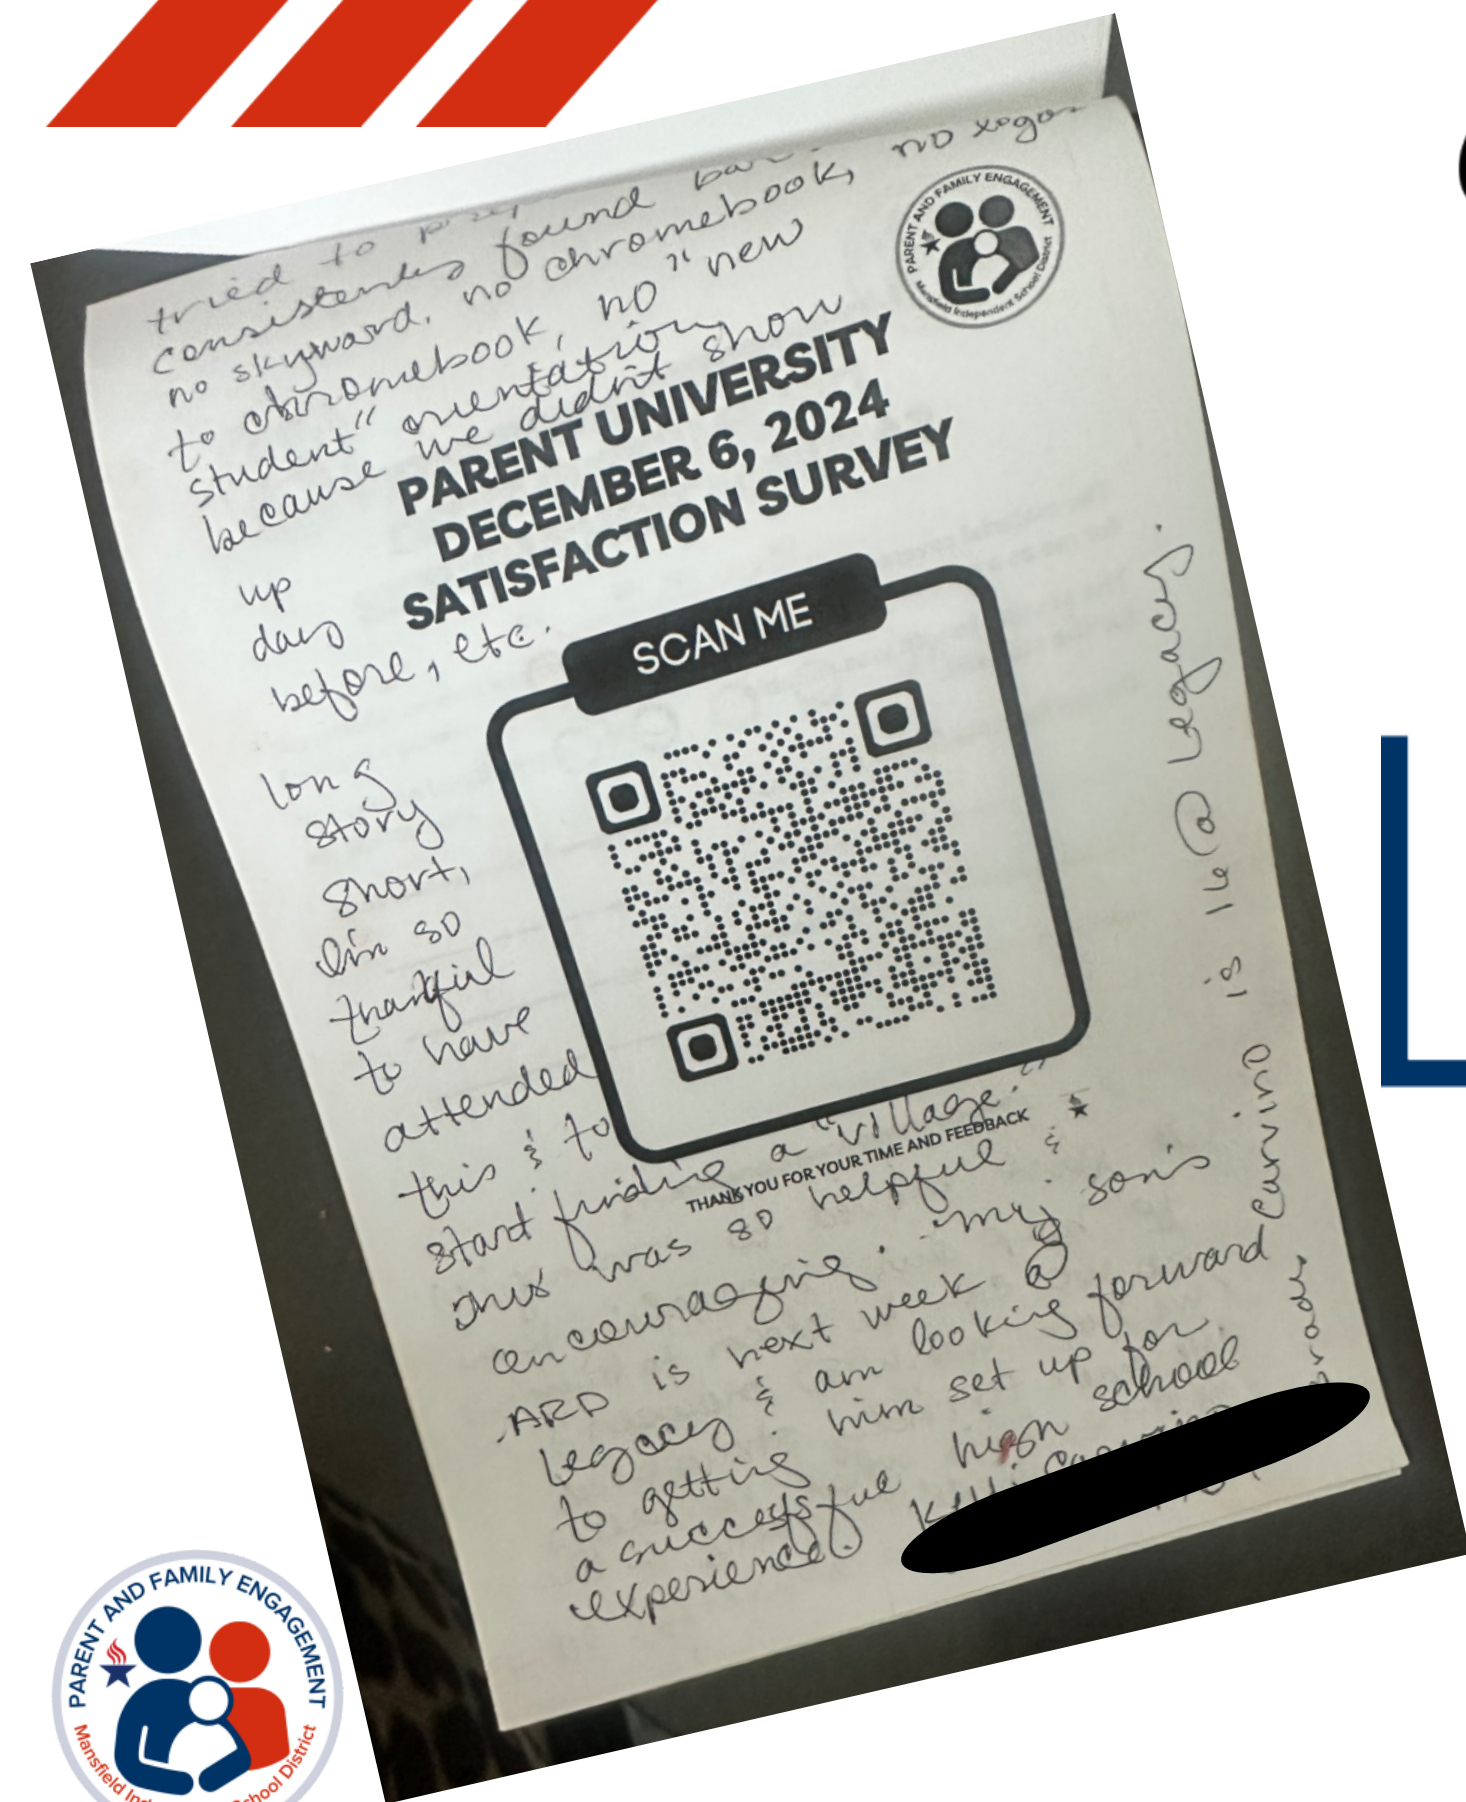 tried to
consistently found
no skyward, no chromebook, no logon
to chromebook, no "new
student" orientation
because we didn't show
up
days
before, etc.
PARENT AND FAMILY ENGAGEMENT
Mansfield Independent School District
PARENT UNIVERSITY
DECEMBER 6, 2024
SATISFACTION SURVEY
SCAN ME
long
story
short,
I'm so
thankful
to have
attended
this & to
start finding a "village."
THANK YOU FOR YOUR TIME AND FEEDBACK
This was so helpful &
encouraging. My son's
ARD is next week @
Legacy & am looking forward
to getting him set up for
a successful high school
experience!
is 16 @ Legacy.
PARENT AND FAMILY ENGAGEMENT
Mansfield School District